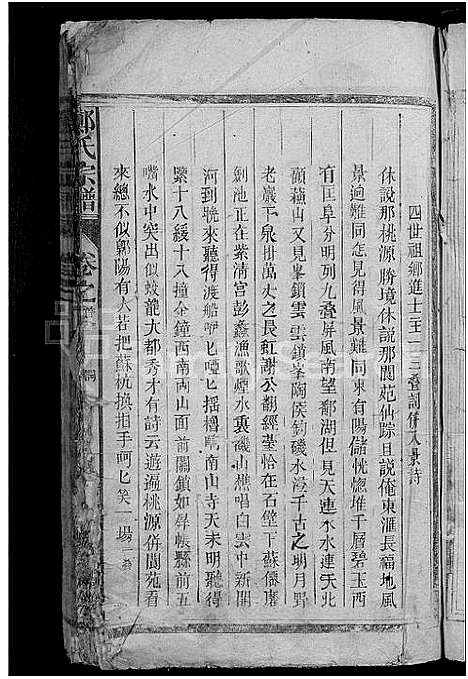 四世祖鄉進士三王一三叠詞併八景詩
休說那桃源勝境休說那閬苑仙踪旦說俺東滙長福地風
景逈難同怎見得風景難同東有陽儲恍惚堆千層碧玉西
有匡阜分明列九叠屏風南望鄱湖但見天連水水連天北
顧蘓山又見峯鎖雲雲鎖峯陶侯釣磯水浸千古之明月野
老巖下泉掛萬丈之長虹謝公翻經臺恰在石壁下蘇儋
劍池正在紫清宮彭蠡漁歌煙水裏磯山樵唱白雲中新開
河到曉來聽得渡船咿匕啞匕搖櫓聲南山寺天未明聽得
緊十八緩十八撞金鐘西南西山面前關鎖如屏帳縣前五
嘴水中突出似蛟龍大都秀才有詩云遊遍桃源併閬苑看
來總不似鄡陽有人若把蘇杭換指手呵匕笑一場
鄭氏宗譜
卷之首